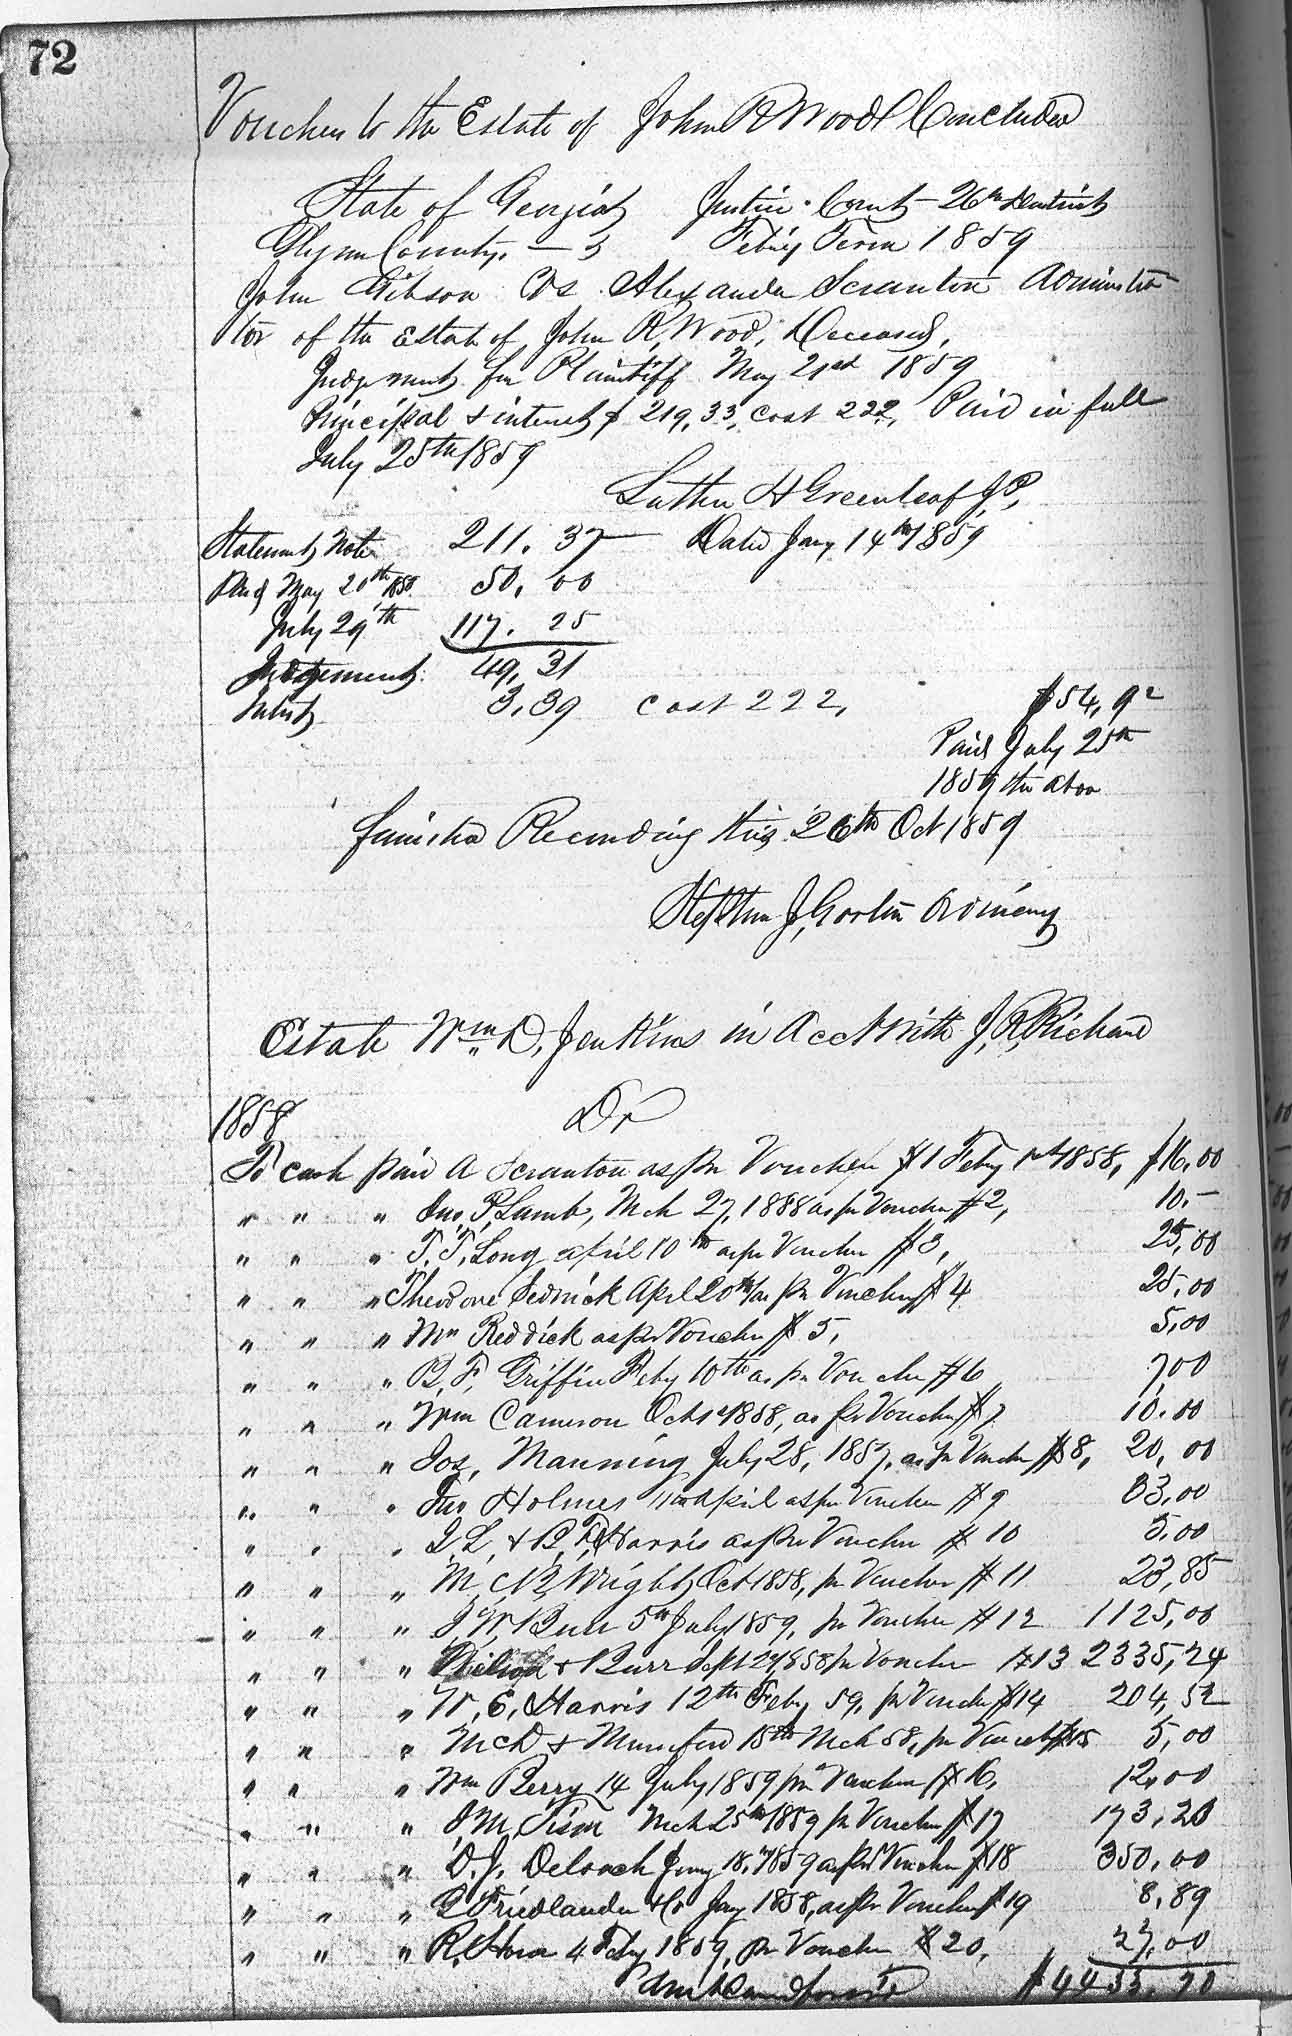 72
Vouchers to the Estate of John R Wood Concluded
State of Georgia Justice Court 26th District
Glynn County. Feby Term 1859
John Gibson Vs Alexander Scranton Administra
tor of the Estate of John R, Wood, Deceased,
Judgment for Plaintiff May 21st 1859
Principal & interest $ 219,33, cost 222, Paid in full
July 25th 1859
Luther H Greenleaf J,P,
Statement Note 211. 37 Dated Jany 14th 1859
Paid May 20th 50. 00
July 29th 117. 25
Judgement 49, 31
Interest 3,39 cost 222, $54,92
Paid July 25th
1859 the above
finished Recording this 26th Oct 1859
Stephen J, Gorton Ordinary
Estate Wm D, Jenkins in Acct With J, R, Richard
1858 Dr
To cash paid A Scranton as pr Voucher #1 Feby 1st 1858, $16,00
" " " Jno, P, Lamb, Mch 27, 1888 as pr Voucher #2, 10.-
" " " T. T, Long april 10th as pr Voucher #3, 25,00
" " " Theodore Sednick Apl 20th as pr Voucher # 4 25,00
" " " Mr Reddick as pr Voucher # 5, 5,00
" " " B, F, Griffin Feby 10th as pr Voucher #6 7,00
" " " Wm Cameron Oct 1858, as pr Voucher # 7 10.00
" " " Jos, Manning July 28, 1857, as pr Voucher #8, 20, 00
" " " Jno Holmes 11th April as pr Voucher # 9 33,00
" " " & B, F, Harris as pr Voucher # 10 5,00
" " " M, N, Wright Oct 1858, pr Voucher # 11 23,85
" " " J, W, Burr 5th July 1859, pr Voucher #12 1125,00
" " " & Burr Sept 24, 1858 pr Voucher #13 2335,24
" " " W, E, Harris 12th Feby 59, pr Voucher #14 204,52
" " " McD & Mumford 15th Mch 58, pr Voucher #15 5,00
" " " Wm Berry 14 July 1859 pr Voucher # 16, 12,00
" " " J, M, Tison Mch 25th 1859 pr Voucher # 17 173,20
" " " D. J, Deloach Jany 18, 1859 as pr Voucher #18 350,00
" " " Friedlander & Co Jany 1858, as pr Voucher # 19 8,89
" " " R, Stone 4 Feby 1859, pr Voucher # 20, 27,00
Amt Carried forward $4433,70